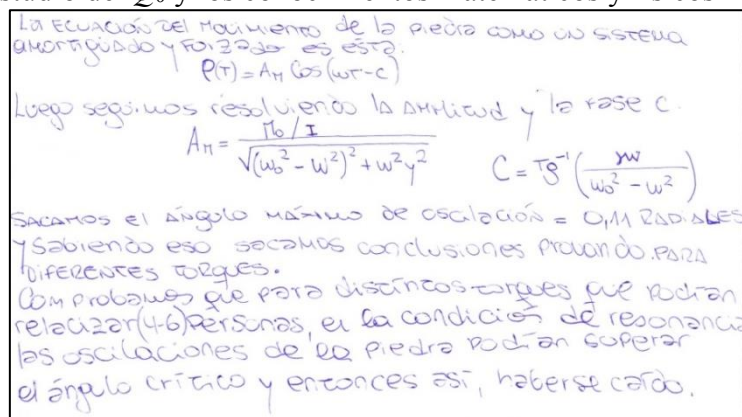 LA ECUACIÓN DEL MOVIMIENTO DE la piedra COMO UN SISTEMA
AMORTIGUADO y FORZADO es ESTA:
φ(T) = A_M Cos(ωT-c)
Luego seguimos resolviendo la AMPLITUD y la FASE C.
A_M = (M₀/I) / √((ω₀² - ω²)² + ω²γ²)    C = Tg⁻¹(γω / (ω₀² - ω²))
SACAMOS el ÁNGULO MÁXIMO DE OSCILACIÓN = 0,11 RADIALES
y sabiendo eso SACAMOS CONCLUSIONES PROVANDO PARA
DIFERENTES TORQUES.
COMPROBAMOS que para distintos torques que podían
relacizar (4-6) Personas, en la condición de resonancia
las oscilaciones de la piedra podían superar
el ángulo crítico y entonces así, haberse caído.